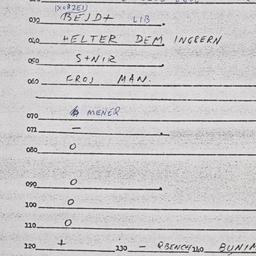 030 BEJD+ LIB
040 HELTER DEM INGEERN
050 S+NIZ
060 CROJ MAN.
070 MENER
071 –
080 O
090 O
100 O
110 O
120 + 130 – RBENCH 140 BUNIM